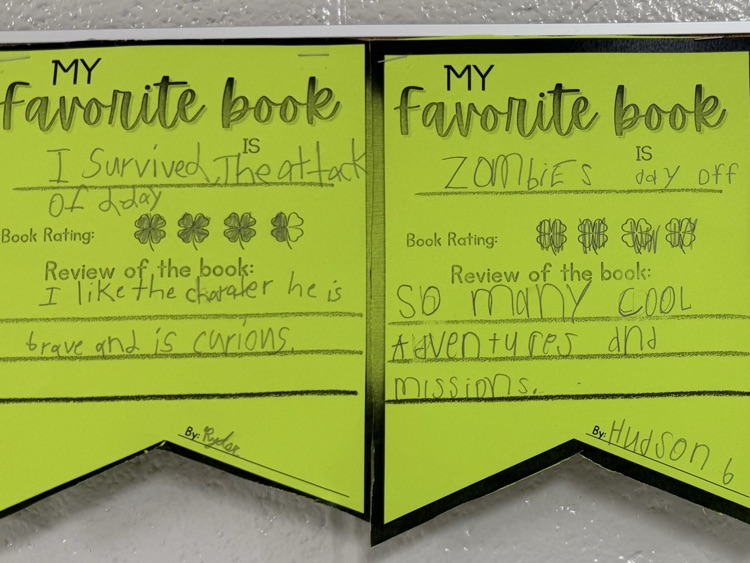 MY
favorite book
IS
I Survived, The attack
of dday
Book Rating:
Review of the book:
I like the charater he is
brave and is curious.
By: Ryder
MY
favorite book
IS
ZOMbiES day off
Book Rating:
Review of the book:
SO mANY COOL
AdvENtURES and
missions.
By: Hudson 6